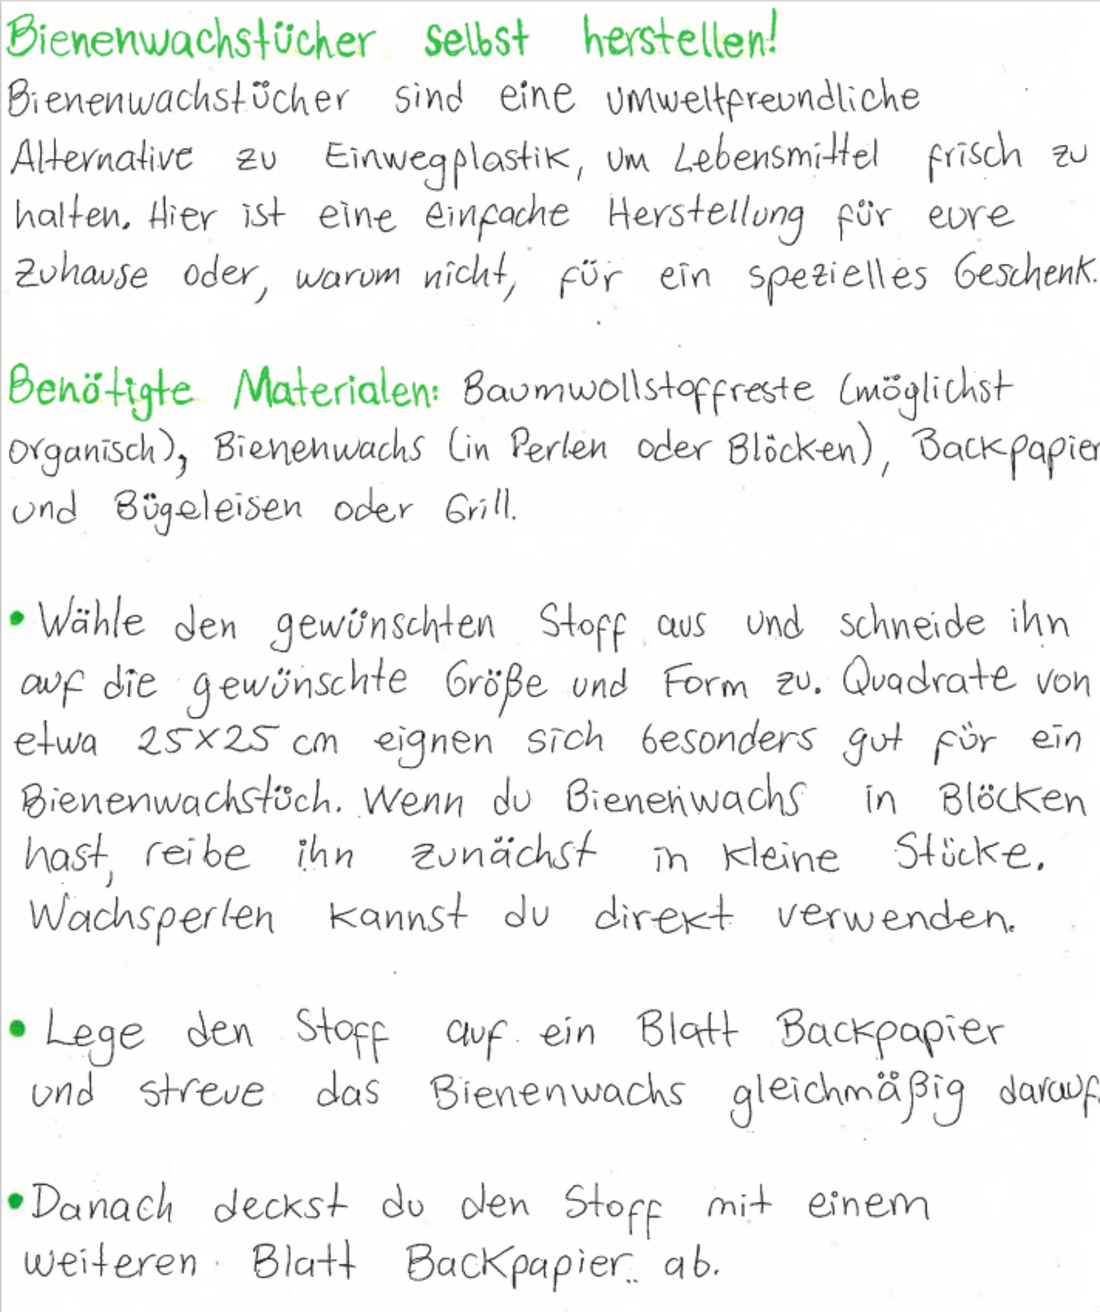 Bienenwachstücher selbst herstellen!
Bienenwachstücher sind eine umweltfreundliche
Alternative zu Einwegplastik, um Lebensmittel frisch zu
halten. Hier ist eine einfache Herstellung für eure
Zuhause oder, warum nicht, für ein spezielles Geschenk.
Benötigte Materialen: Baumwollstoffreste (möglichst
organisch), Bienenwachs (in Perlen oder Blöcken), Backpapier
und Bügeleisen oder Grill.
• Wähle den gewünschten Stoff aus und schneide ihn
auf die gewünschte Größe und Form zu. Quadrate von
etwa 25x25 cm eignen sich besonders gut für ein
Bienenwachstüch. Wenn du Bienenwachs in Blöcken
hast, reibe ihn zunächst in kleine Stücke.
Wachsperlen kannst du direkt verwenden.
• Lege den Stoff auf ein Blatt Backpapier
und streue das Bienenwachs gleichmäßig darauf.
• Danach deckst du den Stoff mit einem
weiteren Blatt Backpapier ab.